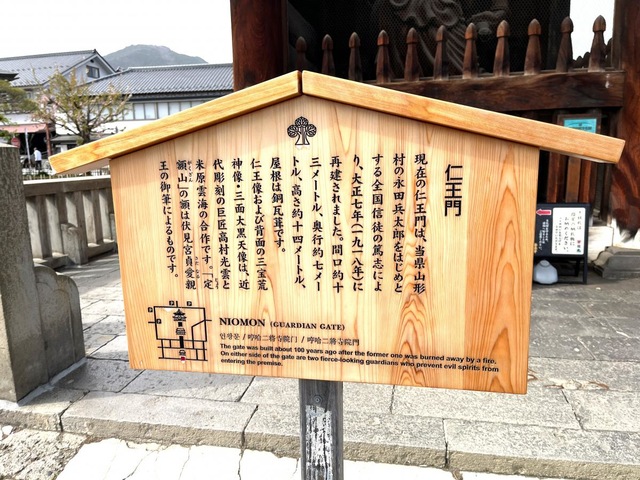 仁王門
現在の仁王門は、当県山形
村の永田兵太郎をはじめと
する全国信徒の篤志によ
り、大正七年(一九一八年)に
再建されました。間口約十
三メートル、奥行約七メー
トル、高さ約十四メートル、
屋根は銅瓦葺です。
仁王像および背面の三宝荒
神像・三面大黒天像は、近
代彫刻の巨匠高村光雲と
米原雲海の合作です。「定
額山」の額は伏見宮貞愛親
王の御筆によるものです。
NIOMON (GUARDIAN GATE)
인왕문 / 哼哈二将寺院门 / 哼哈二將寺院門
The gate was built about 100 years ago after the former one was burned away by a fire.
On either side of the gate are two fierce-looking guardians who prevent evil spirits from
entering the premise.